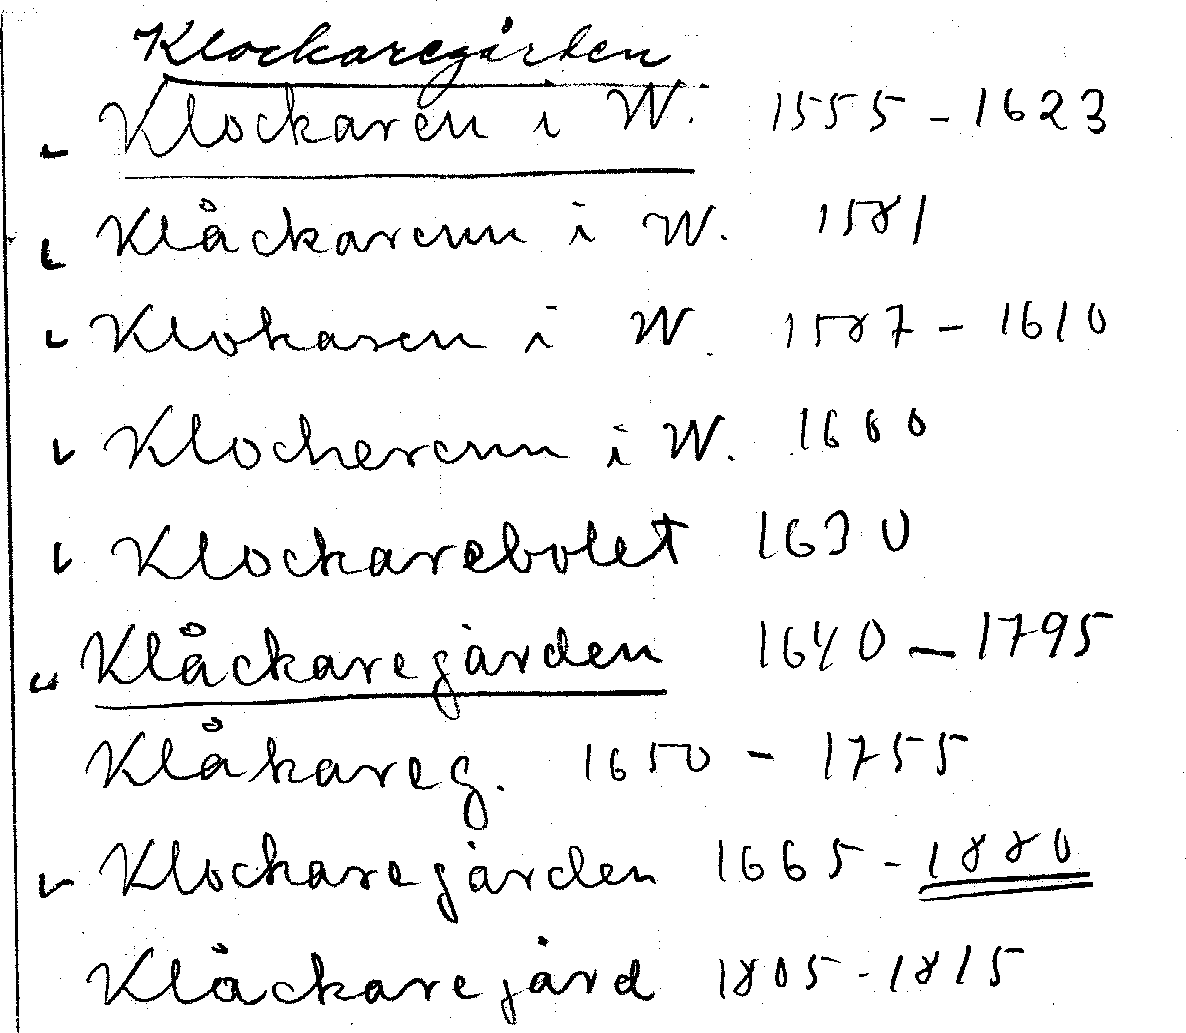 Klockaregården
Klockaren i W. 1555-1623
Klåckarenn i W. 1581
Klokaren i W. 1587-1610
Klockerenn i W. 1600
Klockarebolet 1630
Klåckaregården 1640-1795
Klåkareg. 1650-1755
Klockaregården 1665-1880
Klåckaregård 1805-1815